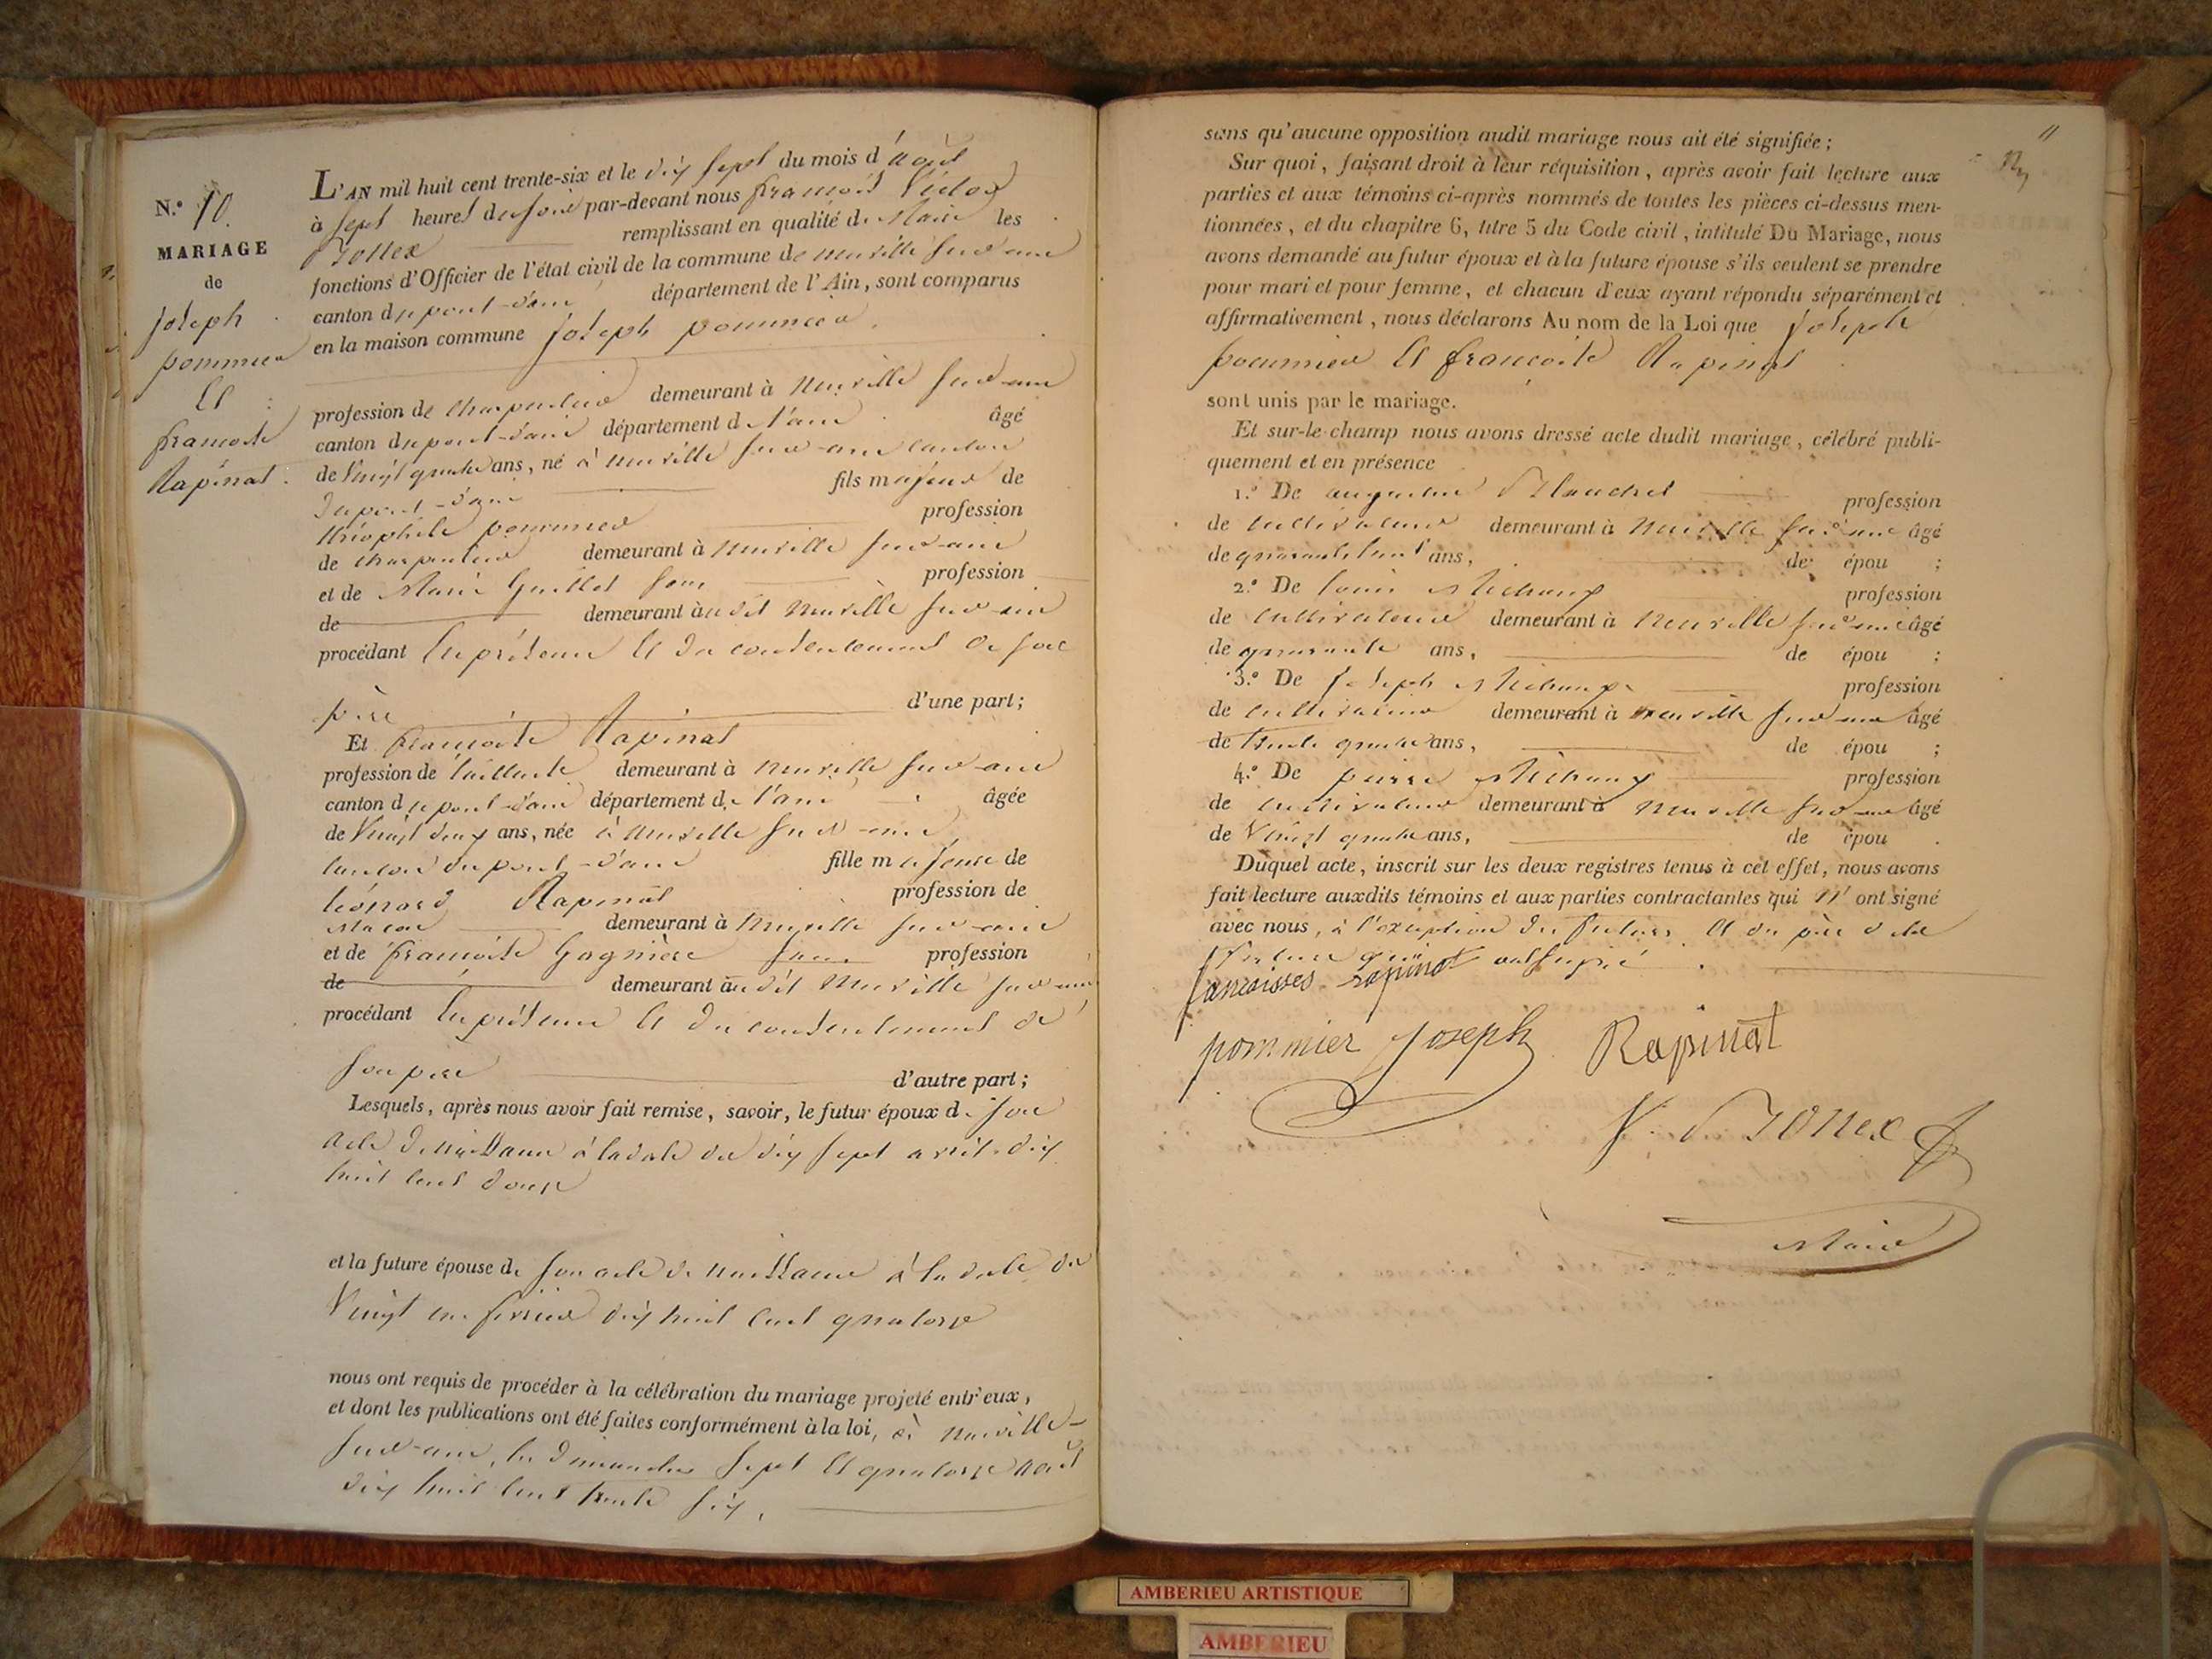 N.º 10.
MARIAGE
de
joseph
pommier
Et
françoise
Rapinat.
L'AN mil huit cent trente-six et le dix sept du mois d'août
à sept heures du soir par-devant nous françois Victor
remplissant en qualité de Maire les
fonctions d'Officier de l'état civil de la commune de neuville sur ain
canton du pont-d'ain département de l'Ain, sont comparus
en la maison commune joseph pommier
profession de charpentier demeurant à neuville sur ain
canton du pont-d'ain département de l'ain âgé
de Vingt quatre ans, né à neuville sur ain canton
du pont-d'ain fils majeur de
théophile pommier profession
de charpentier demeurant à neuville sur ain
et de Marie Guillot profession
de demeurant audit neuville sur ain
procédant en présence et du consentement de son
père d'une part;
Et françoise Rapinat
profession de tailleuse demeurant à neuville sur ain
canton du pont-d'ain département de l'ain âgée
de Vingt deux ans, née à neuville sur ain
canton du pont-d'ain fille majeure de
léonard Rapinat profession de
Maçon demeurant à neuville sur ain
et de françoise Gagnière profession
de demeurant audit neuville sur ain
procédant en présence et du consentement de
son père d'autre part;
Lesquels, après nous avoir fait remise, savoir, le futur époux de son
acte de naissance à la date du dix sept avril dix
huit cent douze
et la future épouse de son acte de naissance à la date du
Vingt un février dix huit cent quatorze
nous ont requis de procéder à la célébration du mariage projeté entr'eux,
et dont les publications ont été faites conformément à la loi, à neuville-
sur-ain, les dimanches sept et quatorze août
dix huit cent trente six.
11
sans qu'aucune opposition audit mariage nous ait été signifiée;
Sur quoi, faisant droit à leur réquisition, après avoir fait lecture aux
parties et aux témoins ci-après nommés de toutes les pièces ci-dessus men-
tionnées, et du chapitre 6, titre 5 du Code civil, intitulé Du Mariage, nous
avons demandé au futur époux et à la future épouse s'ils veulent se prendre
pour mari et pour femme, et chacun d'eux ayant répondu séparément et
affirmativement, nous déclarons Au nom de la Loi que joseph
pommier et françoise Rapinat
sont unis par le mariage.
Et sur-le-champ nous avons dressé acte dudit mariage, célébré publi-
quement et en présence
1.º De augustin Blanchet profession
de cultivateur demeurant à neuville sur ain âgé
de quarante huit ans, de épou ;
2.º De louis Michaux profession
de cultivateur demeurant à neuville sur ain âgé
de quarante ans, de épou ;
3.º De joseph Michaux profession
de cultivateur demeurant à neuville sur ain âgé
de trente quatre ans, de épou ;
4.º De pierre Michaux profession
de cultivateur demeurant à neuville sur ain âgé
de Vingt quatre ans, de épou .
Duquel acte, inscrit sur les deux registres tenus à cet effet, nous avons
fait lecture auxdits témoins et aux parties contractantes qui N'ont signé
avec nous, à l'exception des futurs et du père de la
future qui ont signé.
francoises rapinat
pommier joseph Rapinat
Maire
AMBERIEU ARTISTIQUE
AMBERIEU